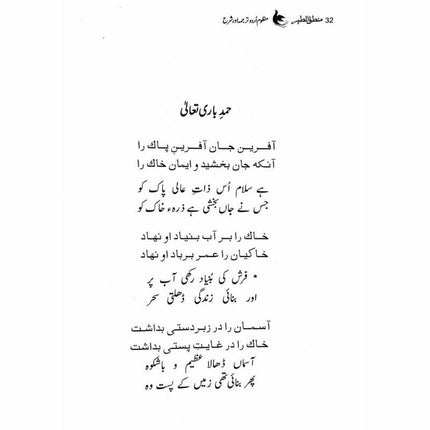 32 منطق الطیر منظوم اُردو ترجمہ اور شرح
حمدِ باری تعالیٰ
آفرین جان آفرینِ پاک را
آنکه جان بخشید و ایمان خاک را
ہے سلام اُس ذاتِ عالی پاک کو
جس نے جاں بخشی ہے ذرہء خاک کو
خاک را بر آب بنیاد او نهاد
خاکیان را عمر برباد او نهاد
* فرش کی بُنیاد رکھی آب پر
اور بنائی زندگی ڈھلتی سحر
آسمان را در زبردستی بداشت
خاک را در غایتِ پستی بداشت
آسماں ڈھالا عظیم و باشکوہ
پھر بنائی تھی زمیں کے پست وہ